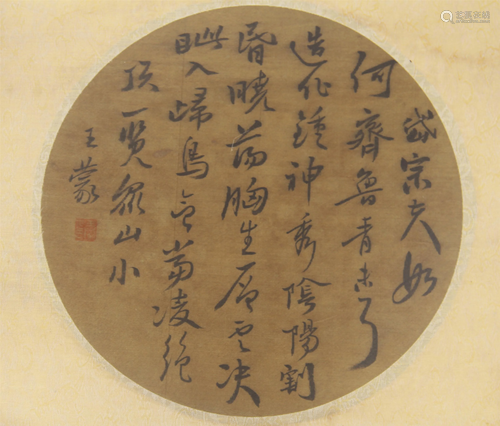 岱宗夫如
何齊魯青未了
造化鍾神秀陰陽割
昏曉蕩胸生層雲决
眦入歸鳥會當凌絕
頂一覽眾山小
王蒙